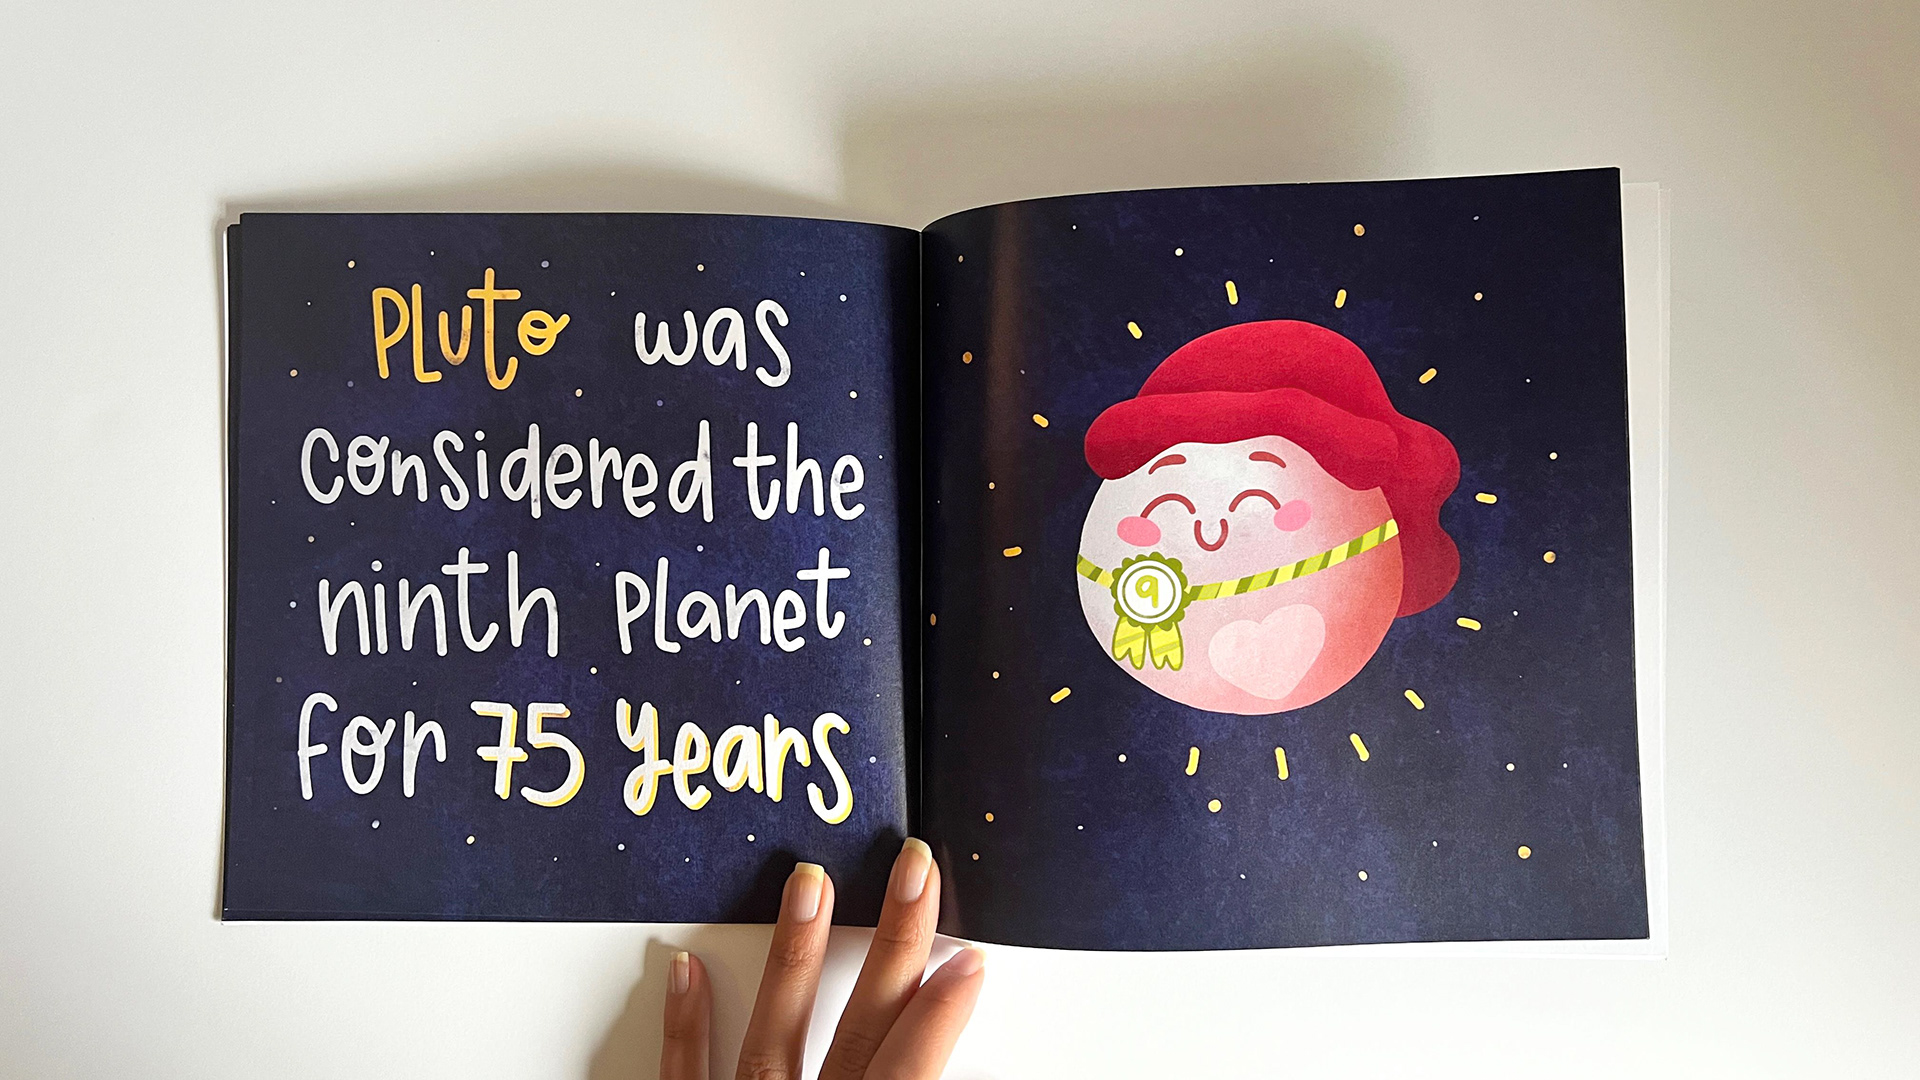 Pluto was
considered the
ninth planet
for 75 years
9